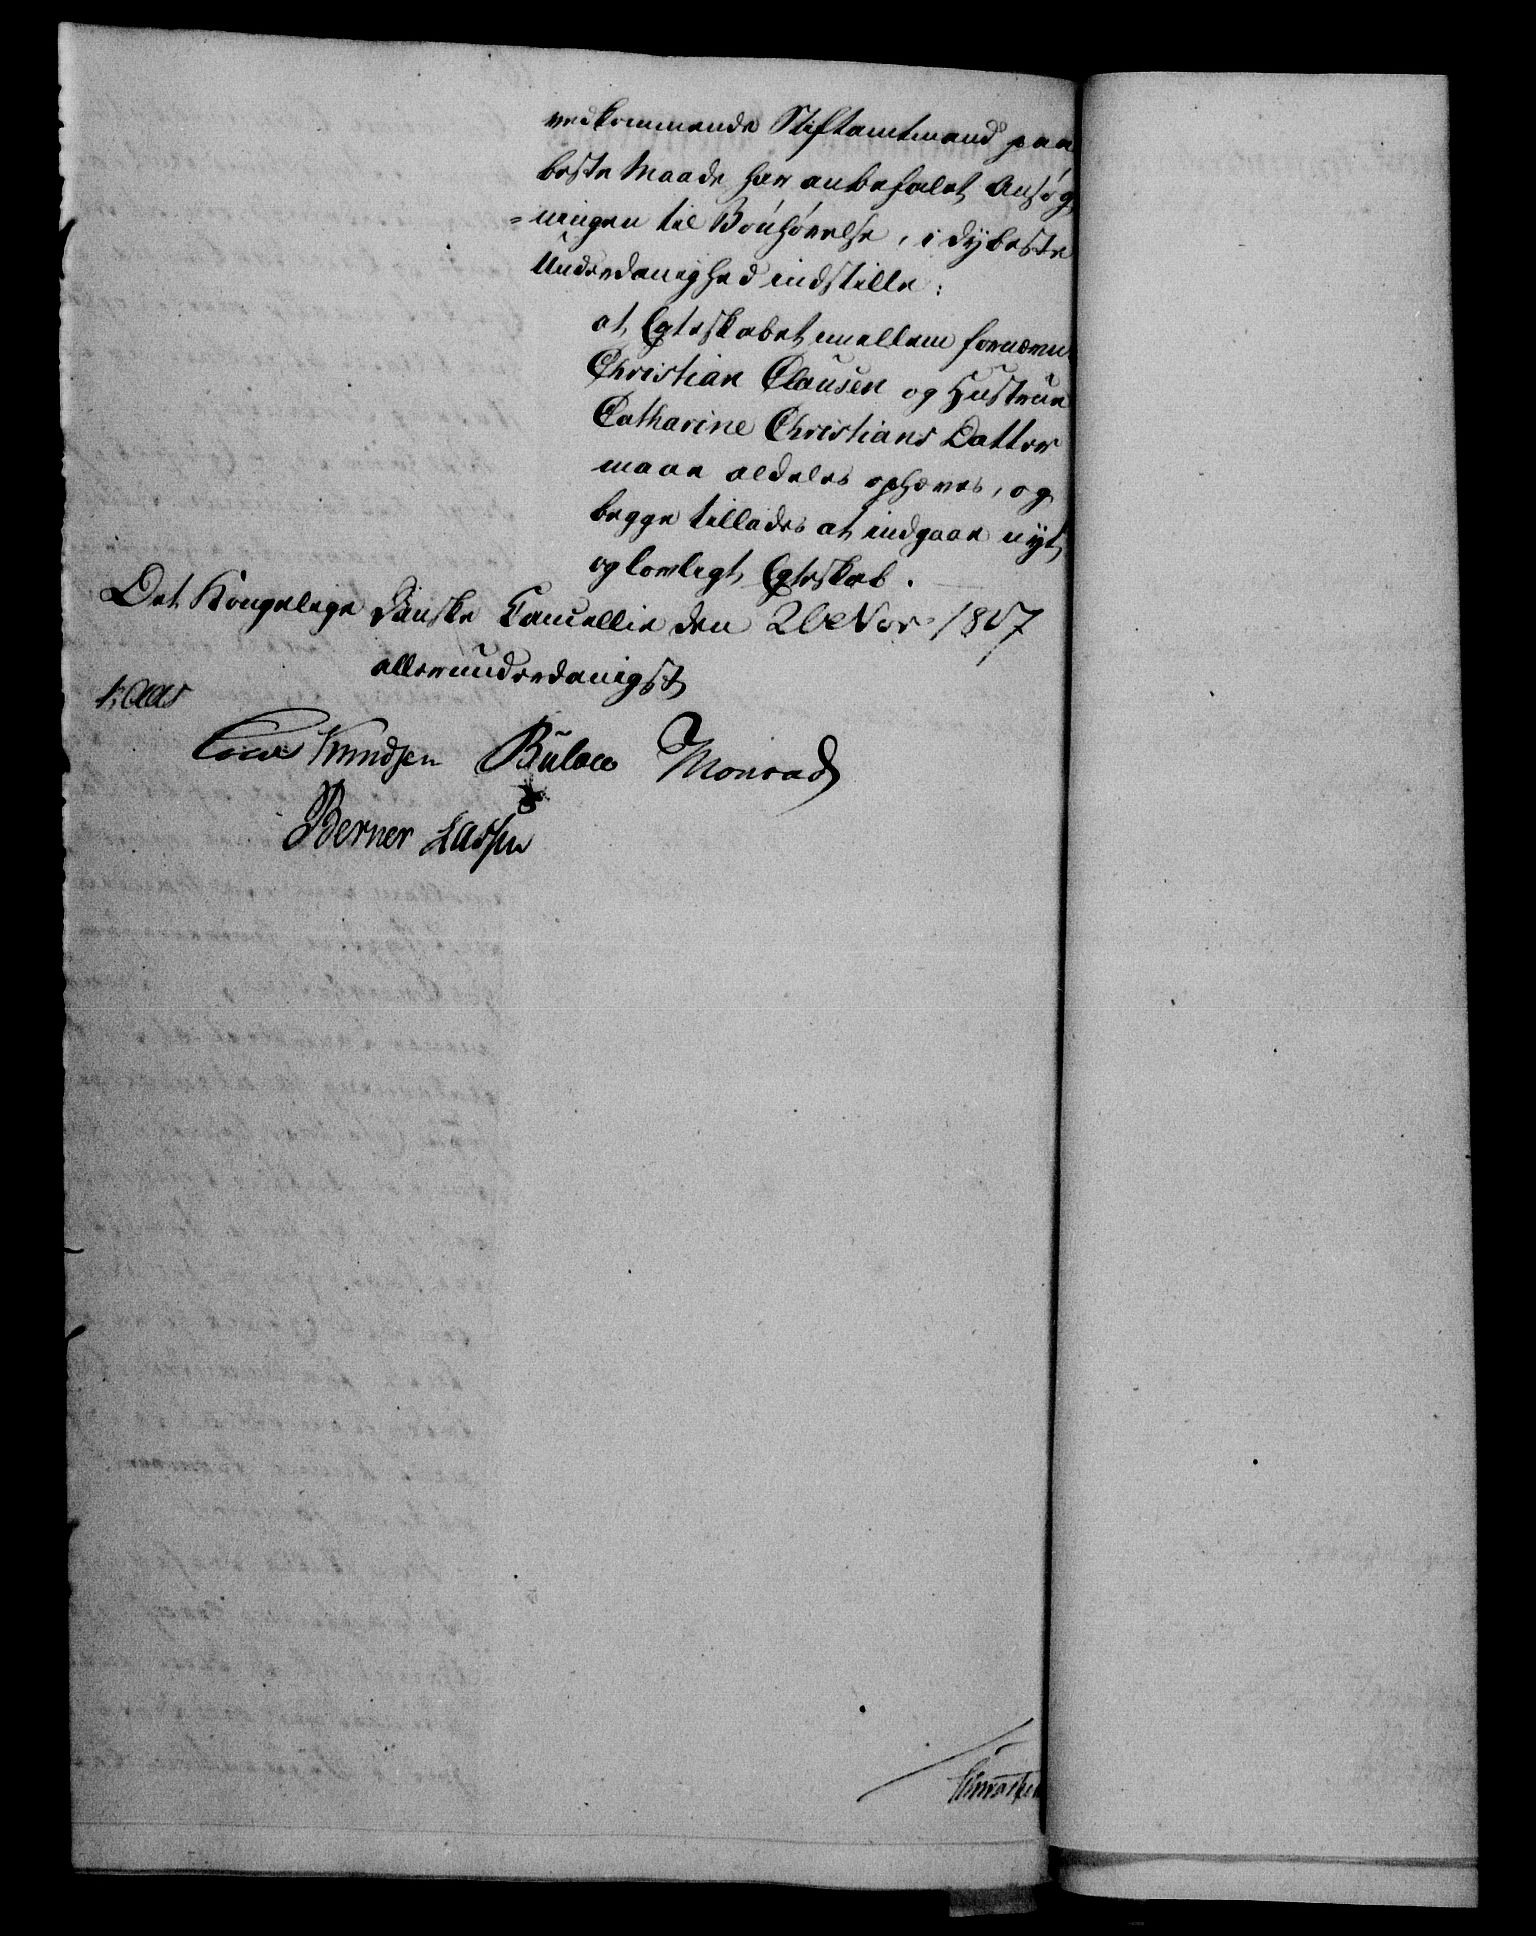 vedkommende Stiftamtmand paa
beste Maade har anbefalet Ansøg
=ningen til Bønhørelse, i dybeste
Underdanighed indstille:
at Egteskabet mellem fornævn
Christian Clausen og Hustrue
Catharine Christians Datter
maae aldeles ophæves, og
begge tillades at indgaae nyt
og lovligt Egteskab.
Det Kongelige Danske Cancellie den 20 Nov 1807
allerunderdanigst
Kaas
Cold Knudsen Bülow Monrad
Berner Lassen